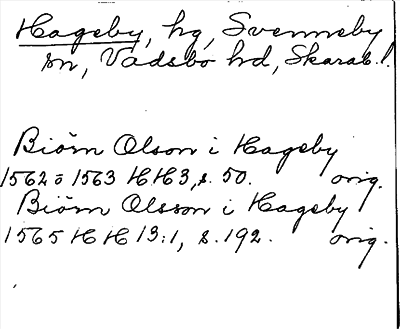 Hageby, hg, Svenneby
sn, Vadsbo hd, Skarab. l.
Biörn Olson i Hageby
1562 o 1563 HH3, s. 50. orig.
Biörn Olsson i Hageby
1565 HH 13:1, s. 192. orig.